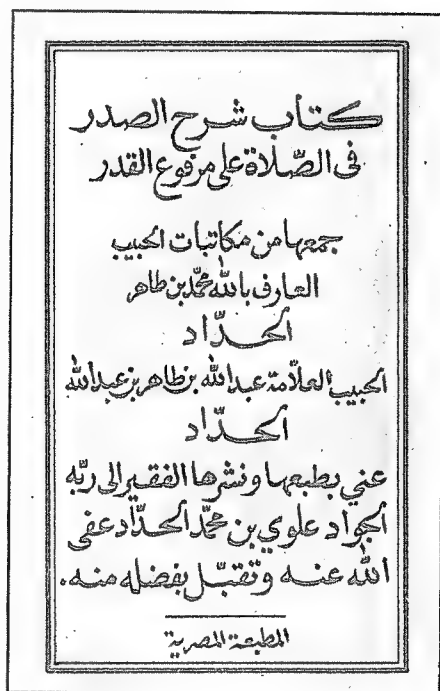 كتاب شرح الصدر
فى الصّلاة على مرفوع القدر
جمعها من مكاتبات الحبيب
العارف بالله محمّد بن طاهر
الحدّاد
الحبيب العلاّمة عبد الله بن طاهر بن عبد الله
الحدّاد
عني بطبعها ونشرها الفقير الى ربّه
الجواد علوي بن محمّد الحدّاد عفى
الله عنه وتقبّل بفضله منه.
المطبعة المصرية